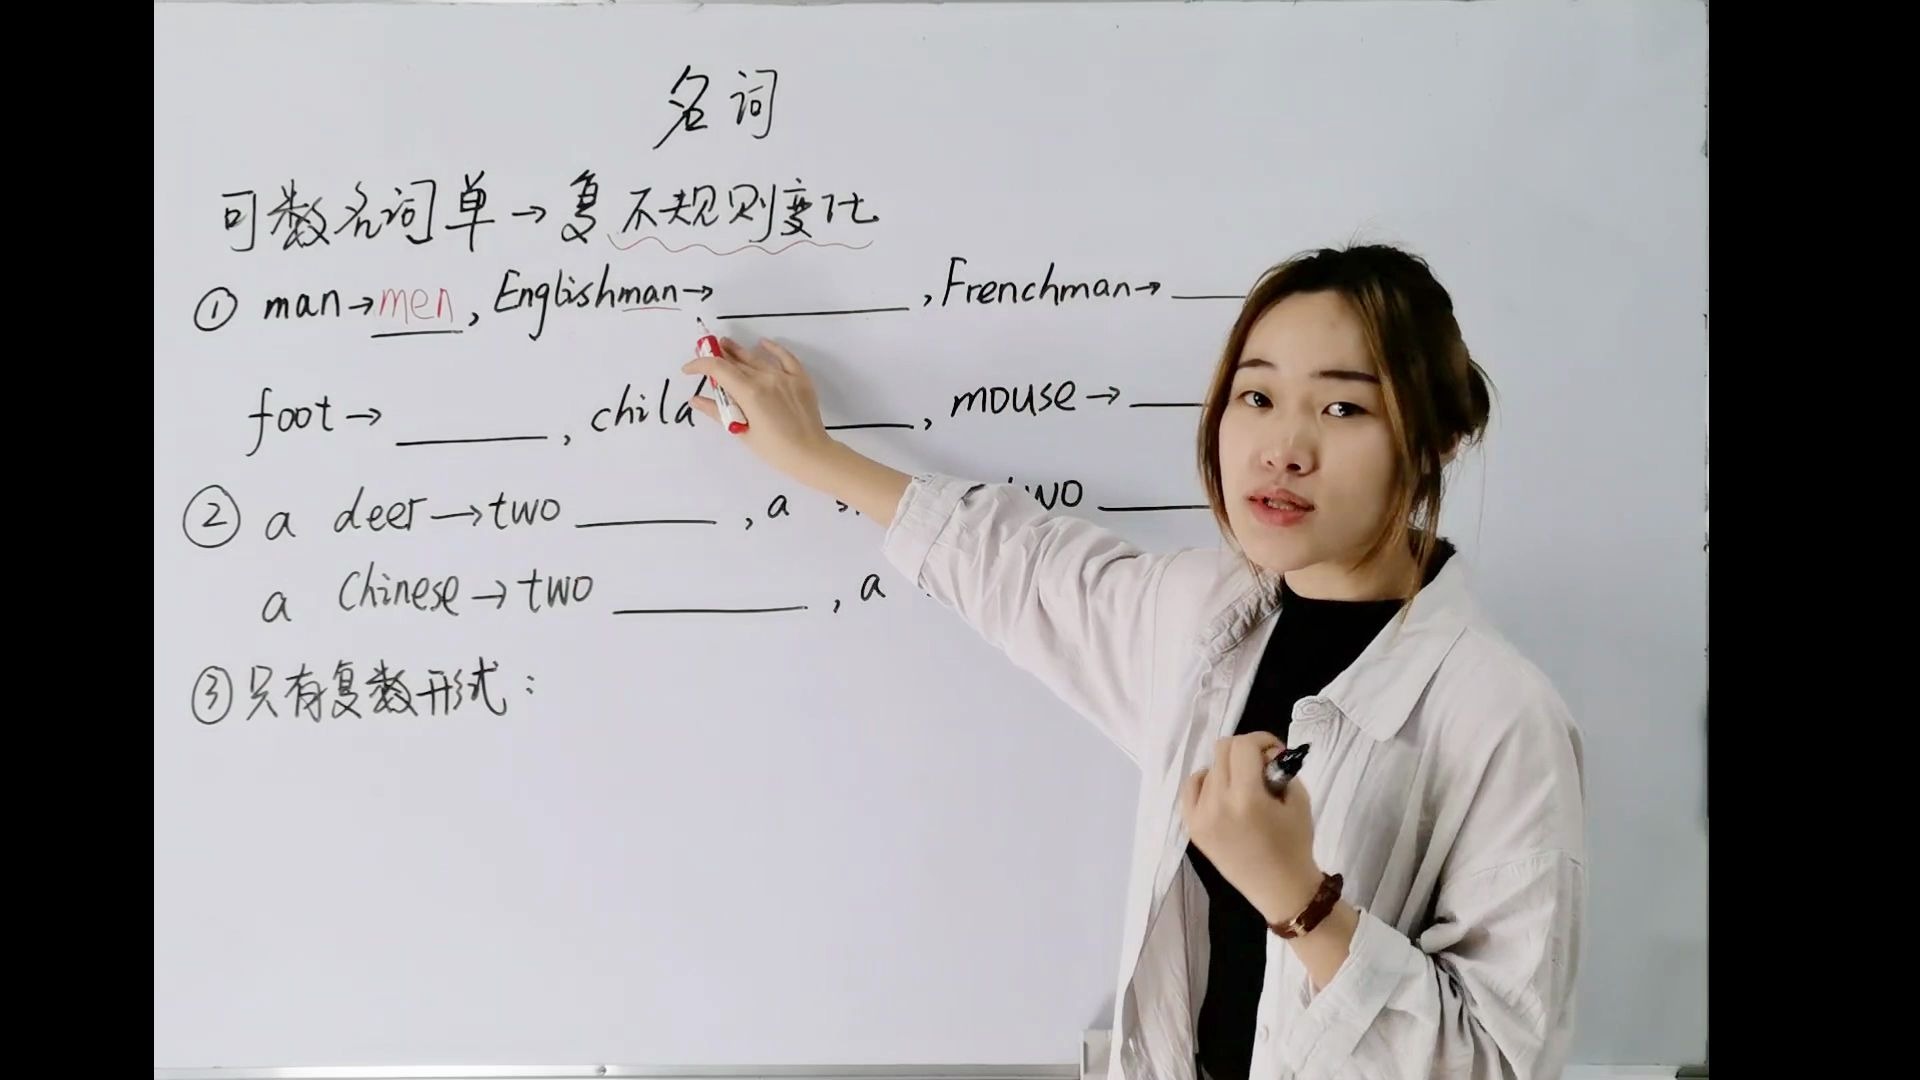 名词
可数名词单→复 不规则变化
① man→men, Englishman→______, Frenchman→____
foot→______, child ____, mouse→____
② a deer→two ______, a two ____
a Chinese→two ______, a
③只有复数形式：